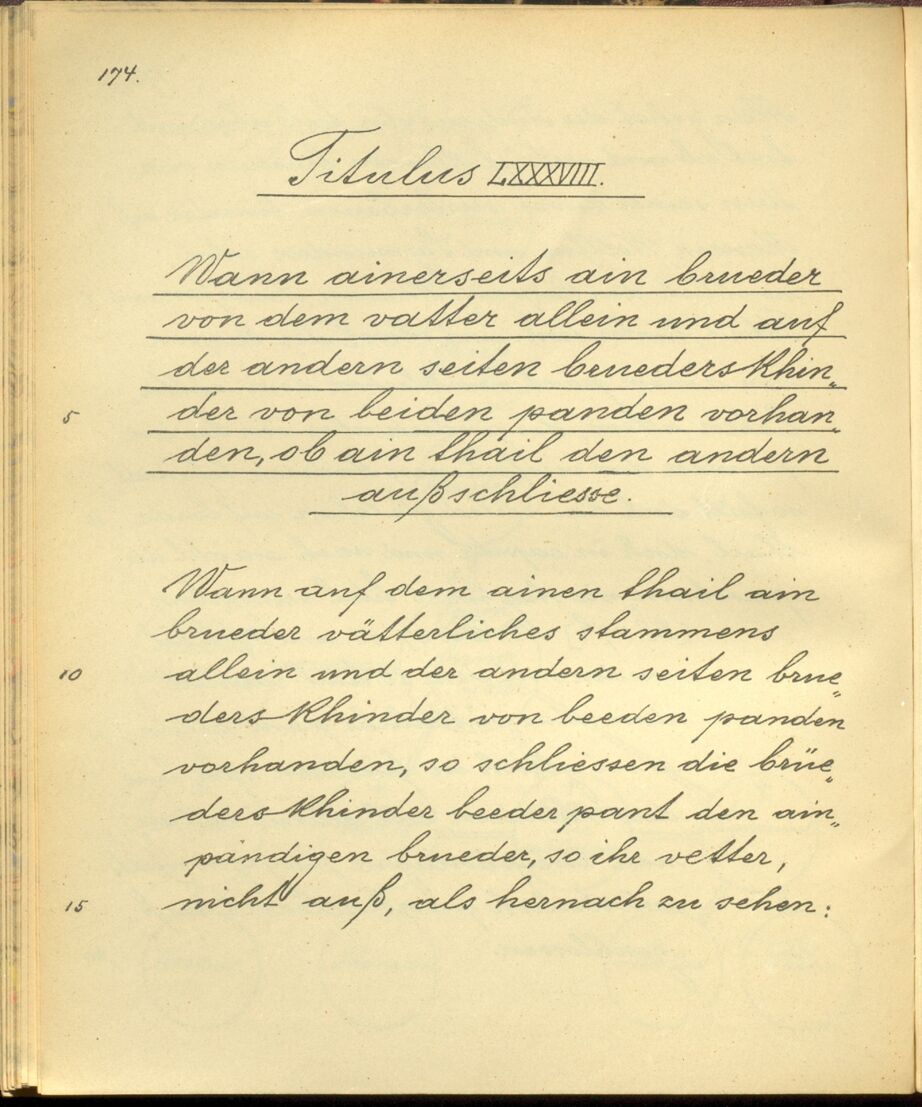 174.
Titulus LXXXVIII.
Wann ainerseits ain brueder
von dem vatter allein und auf
der andern seiten bruederskhin„
5 der von beiden panden vorhan„
den, ob ain thail den andern
außschliesse.
Wann auf dem ainen thail ain
brueder vätterliches stammens
10 allein und der andern seiten brue„
derskhinder von beeden panden
vorhanden, so schliessen die brüe„
derskhinder beeder pant den ain„
pändigen brueder, so ihr vetter,
15 nicht auß, als hernach zu sehen: